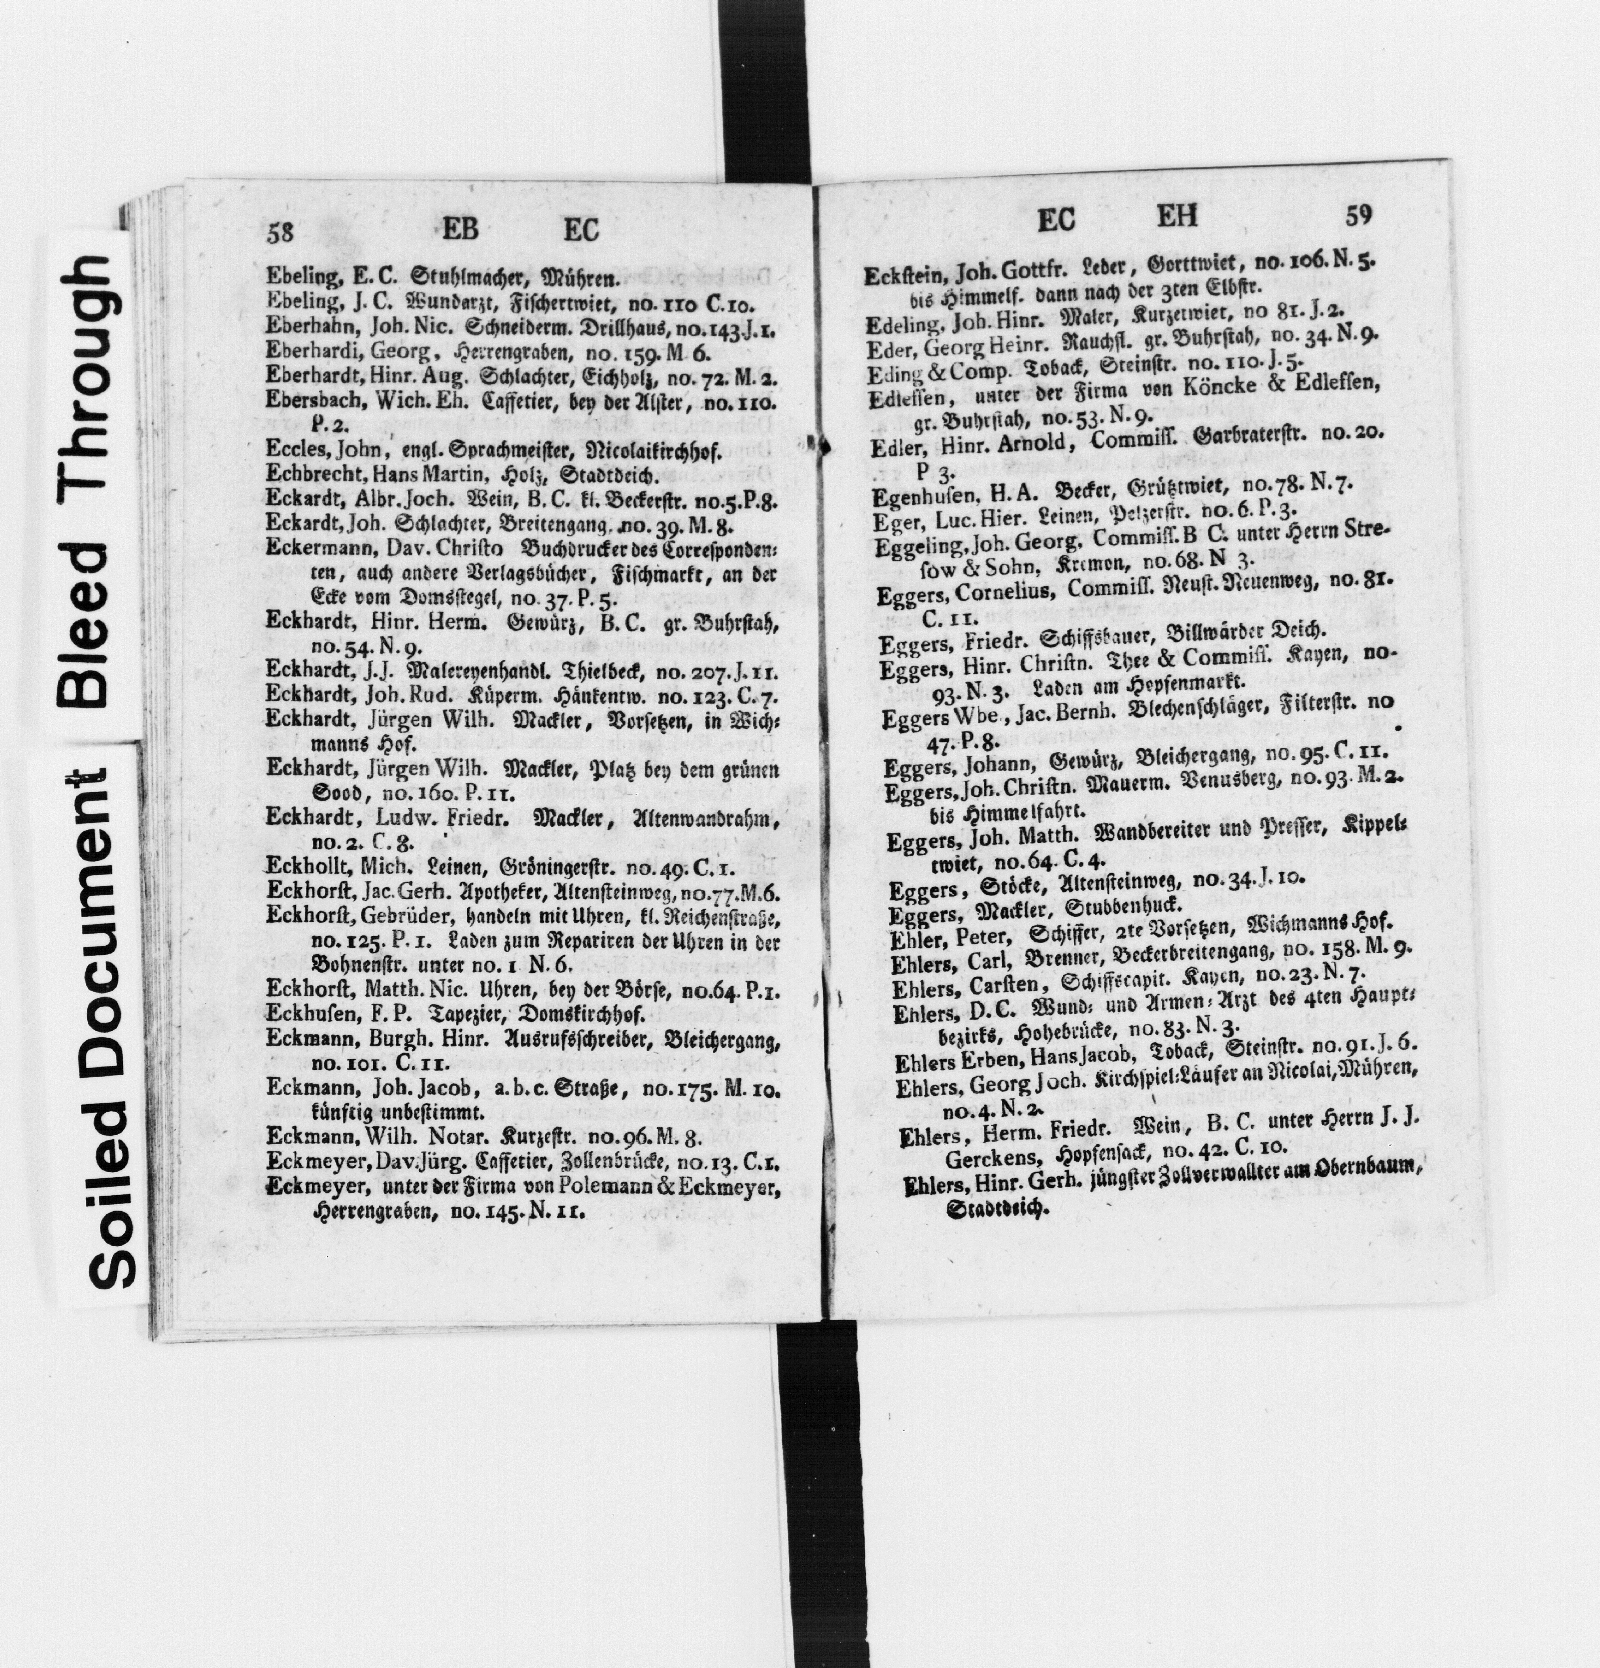 Soiled Document Bleed Through
58 EB EC
Ebeling, E. C. Stuhlmacher, Mühren.
Ebeling, J. C. Wundarzt, Fischertwiet, no. 110 C. 10.
Eberhahn, Joh. Nic. Schneiderm. Drillhaus, no. 143. J. 1.
Eberhardi, Georg, Herrengraben, no. 159. M 6.
Eberhardt, Hinr. Aug. Schlachter, Eichholz, no. 72. M. 2.
Ebersbach, Wich. Eh. Caffetier, bey der Alster, no. 110.
P. 2.
Eccles, John, engl. Sprachmeister, Nicolaikirchhof.
Echbrecht, Hans Martin, Holz, Stadtdeich.
Eckardt, Albr. Joch. Wein, B. C. kl. Beckerstr. no. 5. P. 8.
Eckardt, Joh. Schlachter, Breitengang. no. 39. M. 8.
Eckermann, Dav. Christo Buchdrucker des Corresponden-
ten, auch andere Verlagsbücher, Fischmarkt, an der
Ecke vom Domsstegel, no. 37. P. 5.
Eckhardt, Hinr. Herm. Gewürz, B. C. gr. Buhrstah,
no. 54. N. 9.
Eckhardt, J. J. Malereyenhandl. Thielbeck, no. 207. J. 11.
Eckhardt, Joh. Rud. Küperm. Hänkentw. no. 123. C. 7.
Eckhardt, Jürgen Wilh. Mackler, Vorsetzen, in Wich-
manns Hof.
Eckhardt, Jürgen Wilh. Mackler, Platz bey dem grünen
Sood, no. 160. P. 11.
Eckhardt, Ludw. Friedr. Mackler, Altenwandrahm,
no. 2. C. 8.
Eckhollt, Mich. Leinen, Gröningerstr. no. 49. C. 1.
Eckhorst, Jac. Gerh. Apotheker, Altensteinweg, no. 77. M. 6.
Eckhorst, Gebrüder, handeln mit Uhren, kl. Reichenstraße,
no. 125. P. 1. Laden zum Repariren der Uhren in der
Bohnenstr. unter no. 1 N. 6.
Eckhorst, Matth. Nic. Uhren, bey der Börse, no. 64. P. 1.
Eckhusen, F. P. Tapezier, Domskirchhof.
Eckmann, Burgh. Hinr. Ausrufsschreiber, Bleichergang,
no. 101. C. 11.
Eckmann, Joh. Jacob, a. b. c. Straße, no. 175. M. 10.
künftig unbestimmt.
Eckmann, Wilh. Notar. Kurzestr. no. 96. M. 8.
Eckmeyer, Dav. Jürg. Caffetier, Zollenbrücke, no. 13. C. 1.
Eckmeyer, unter der Firma von Polemann & Eckmeyer,
Herrengraben, no. 145. N. 11.
EC EH 59
Eckstein, Joh. Gottfr. Leder, Gorttwiet, no. 106. N. 5.
bis Himmelf. dann nach der 3ten Elbstr.
Edeling, Joh. Hinr. Maler, Kurzetwiet, no 81. J. 2.
Eder, Georg Heinr. Rauchfl. gr. Buhrstah, no. 34. N. 9.
Eding & Comp. Toback, Steinstr. no. 110. J. 5.
Edlefsen, unter der Firma von Köncke & Edlefsen,
gr. Buhrstah, no. 53. N. 9.
Edler, Hinr. Arnold, Commiss. Garbraterstr. no. 20.
P 3.
Egenhusen, H. A. Becker, Grütztwiet, no. 78. N. 7.
Eger, Luc. Hier. Leinen, Pelzerstr. no. 6. P. 3.
Eggeling, Joh. Georg, Commiss. B C. unter Herrn Stre-
sow & Sohn, Kremon, no. 68. N 3.
Eggers, Cornelius, Commiss. Neust. Neuenweg, no. 81.
C. 11.
Eggers, Friedr. Schiffsbauer, Billwärder Deich.
Eggers, Hinr. Christn. Thee & Commiss. Kayen, no.
93. N. 3. Laden am Hopfenmarkt.
Eggers Wbe, Jac. Bernh. Blechenschläger, Filterstr. no
47. P. 8.
Eggers, Johann, Gewürz, Bleichergang, no. 95. C. 11.
Eggers, Joh. Christn. Mauerm. Venusberg, no. 93. M. 2.
bis Himmelfahrt.
Eggers, Joh. Matth. Wandbereiter und Presser, Kippel-
twiet, no. 64. C. 4.
Eggers, Stöcke, Altensteinweg, no. 34. J. 10.
Eggers, Mackler, Stubbenhuck.
Ehler, Peter, Schiffer, 2te Vorsetzen, Wichmanns Hof.
Ehlers, Carl, Brenner, Beckerbreitengang, no. 158. M. 9.
Ehlers, Carsten, Schiffscapit. Kayen, no. 23. N. 7.
Ehlers, D. C. Wund- und Armen-Arzt des 4ten Haupt-
bezirks, Hohebrücke, no. 83. N. 3.
Ehlers Erben, Hans Jacob, Toback, Steinstr. no. 91. J. 6.
Ehlers, Georg Joch. Kirchspiel-Läufer an Nicolai, Mühren,
no. 4. N. 2.
Ehlers, Herm. Friedr. Wein, B. C. unter Herrn J. J.
Gerckens, Hopfensack, no. 42. C. 10.
Ehlers, Hinr. Gerh. jüngster Zollverwallter am Obernbaum,
Stadtdeich.